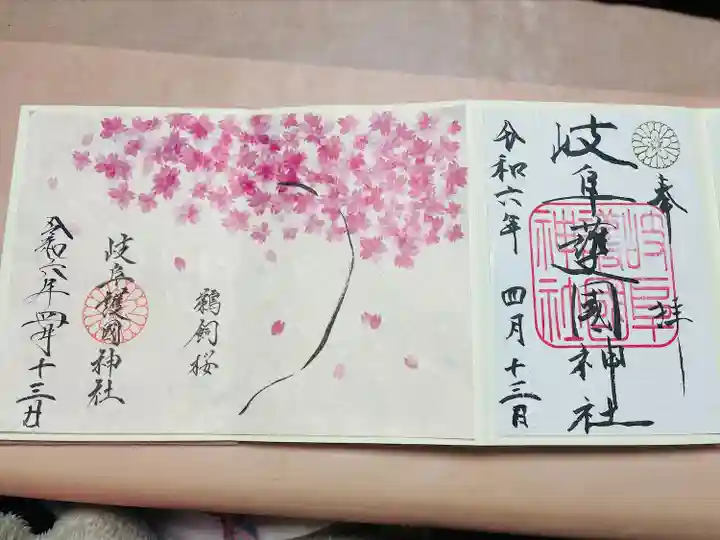 奉拝
岐阜護國神社
岐阜護國神社
令和六年 四月 十三日
鵜飼桜
岐阜護國神社
令和六年四月十三日